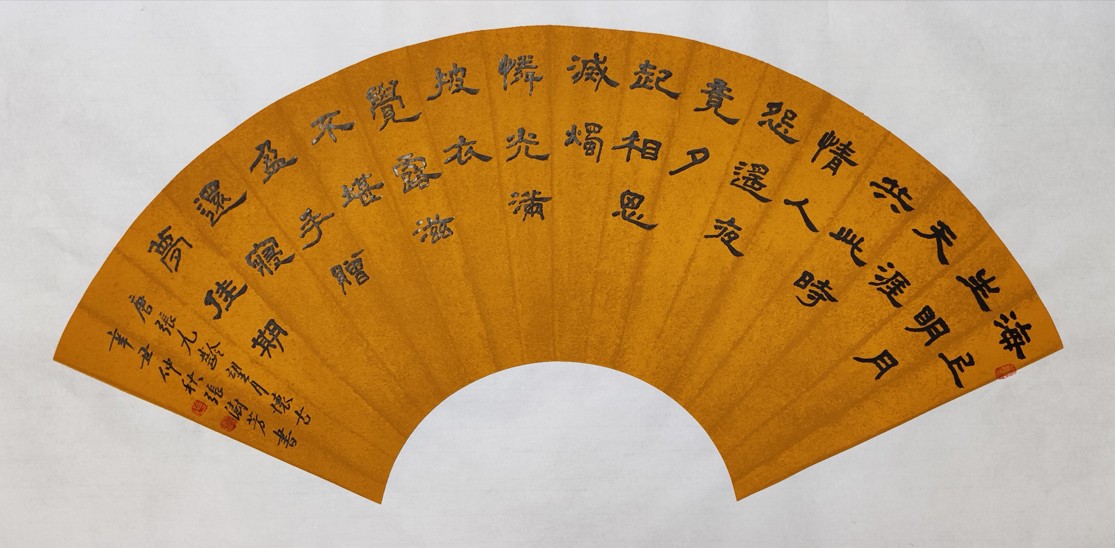 海上
生明月
天涯
共此時
情人
怨遙夜
竟夕
起相思
滅燭
憐光滿
披衣
覺露滋
不堪
盈手贈
還寢
夢佳期
唐張九齡望月懷古
辛丑仲秋張澍芳書